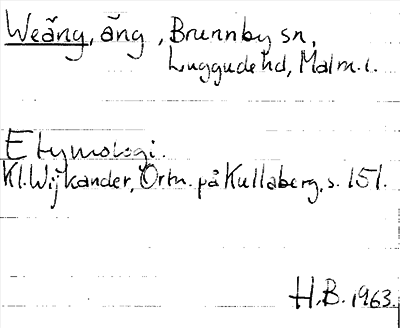 Weäng, äng, Brunnby sn,
Luggude hd, Malm. l.
Etymologi.
Kl. Wijkander, Ortn. på Kullaberg, s. 151.
H.B. 1963.